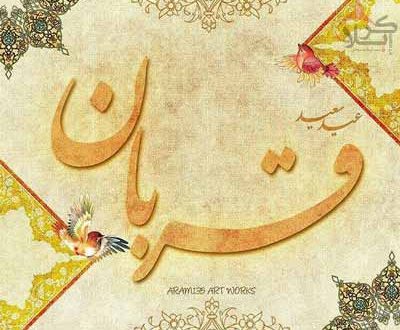 عید سعید
قربان
ARAM135 ART WORKS